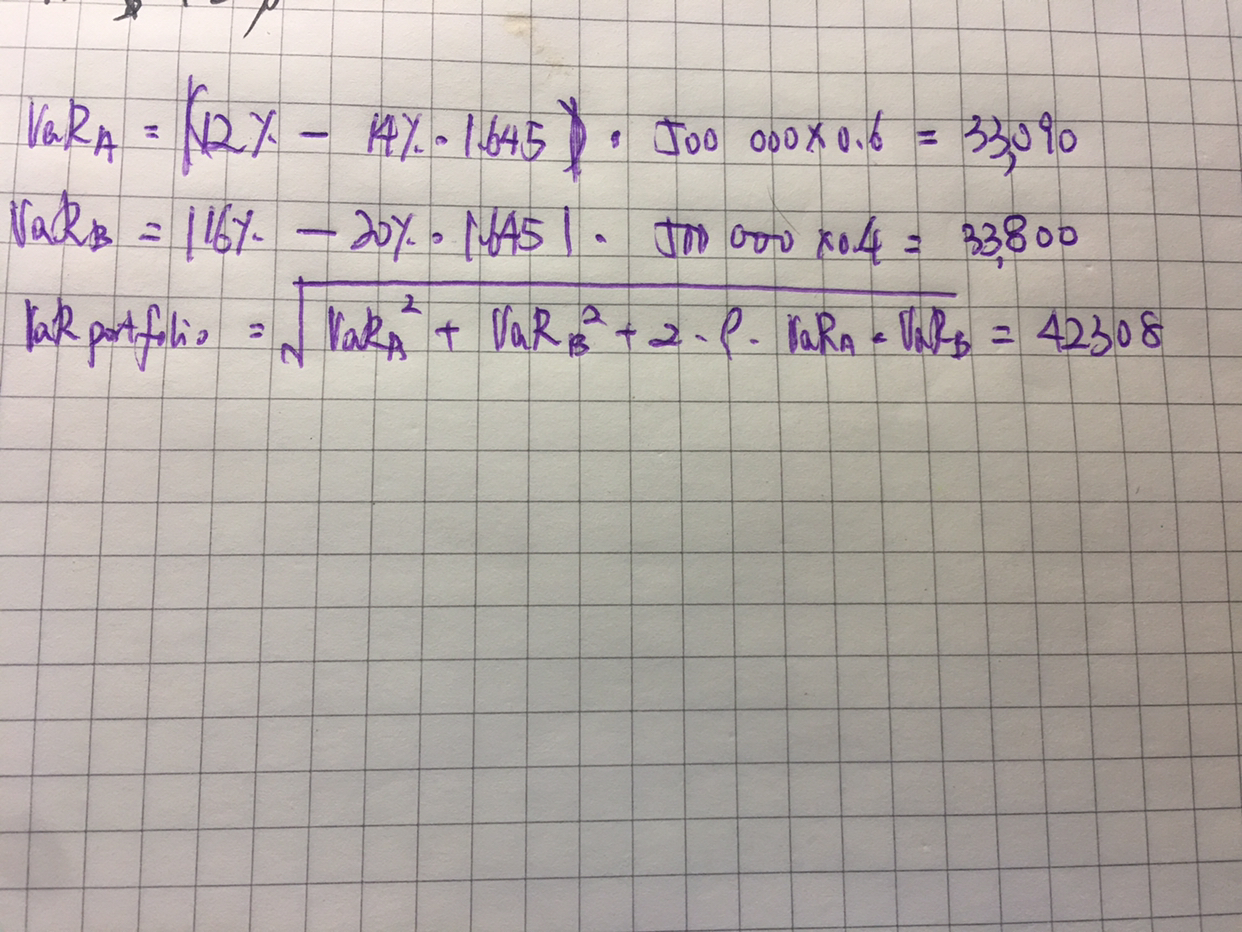 VaR_A = |12% - 14% · 1.645| · 500 000 × 0.6 = 33,090
VaR_B = |16% - 20% · 1.645| · 500 000 × 0.4 = 33,800
VaR portfolio = √(VaR_A² + VaR_B² + 2 · ρ · VaR_A · VaR_B) = 42308